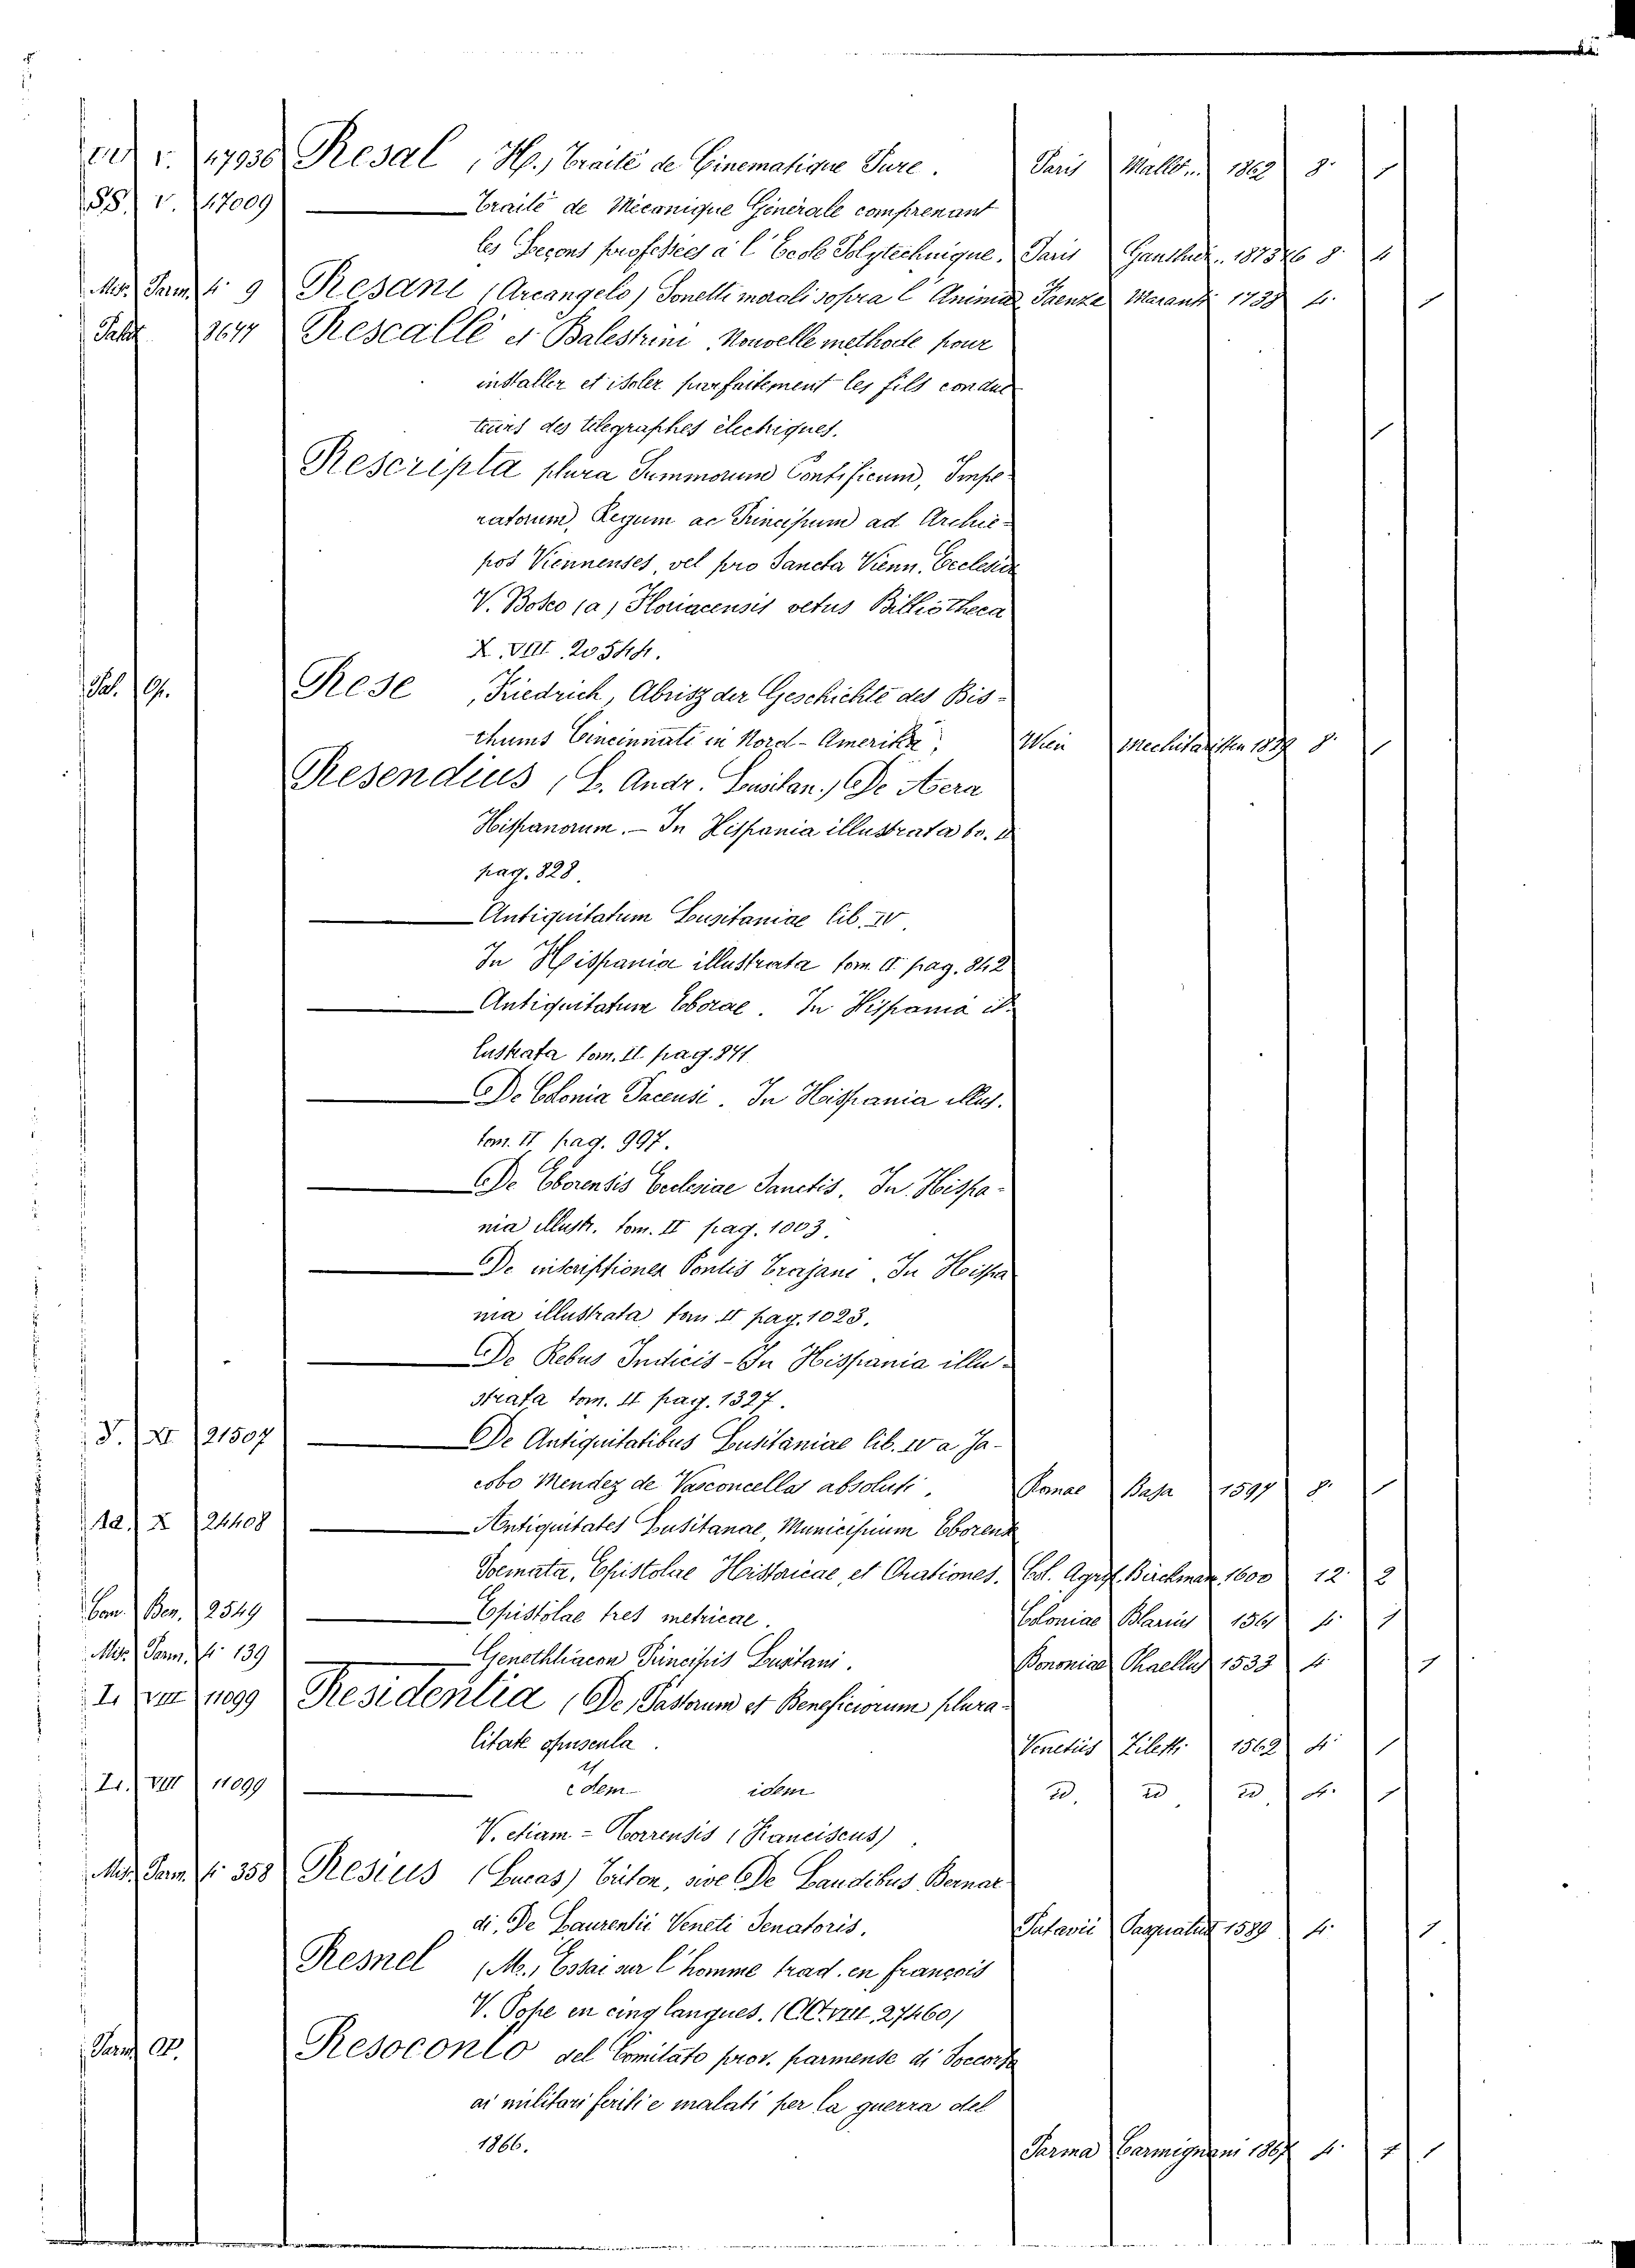 v. 47936 Resal, H., Traité de Cinematique Pure. Paris Mallet 1862 8. 1
SS. v. 47009 Traité de Mécanique Générale comprenant
les Leçons professées à l'Ecole Polytechnique. Paris Gauthier. 1873 76 8. 4
Mis. Parm. 4. 9 Resani (Arcangelo) Sonetti morali sopra l'Anima Faenza Maranti 1738 4. 1
Palat 3647 Rescallé et Balestrini Nouvelle methode pour
installer et isoler parfaitement les fils conduc
teurs des telegraphes électriques. 1
Rescripta plura Summorum Pontificum, Impe
ratorum, Regum ac Principum ad Archie-
pos Viennenses, vel pro Sancta Vienn. Ecclesia
V. Bosco (a) Floriacensis vetus Bibliotheca
X. VIII 20544.
Pal. Op. Rese, Friedrich, Abrisz der Geschichte des Bis-
thums Cincinnati in Nord-Amerika, Wien Mechitaristen 1829 8. 1
Resendius (L. Andr. Lusitan.) De Aera
Hispanorum. - In Hispania illustrata to. II
pag. 828.
Antiquitatum Lusitaniae lib. IV.
In Hispania illustrata tom. II pag. 842
Antiquitatum Eborae. In Hispania il-
lustrata tom. II pag. 871.
De Colonia Pacensi. In Hispania illus.
tom. II pag. 997.
De Eborensis Ecclesiae Sanctis. In Hispa-
nia illustr. tom. II pag. 1003.
De inscriptiones Pontis Trajani. In Hispa
nia illustrata tom II pag. 1023.
De Rebus Indicis - In Hispania illu-
strata tom. II pag. 1327.
V. XI 21507 De Antiquitatibus Lusitaniae lib. IV a Ja-
cobo Mendez de Vasconcellos absoluti. Romae Basa 1597 8. 1
Aa. X 24408 Antiquitates Lusitanae, Municipium Eborens
Poemata, Epistolae Historicae, et Orationes. Col. Agrip. Birckman. 1600 12. 2
Com. Ben. 2549 Epistolae tres metricae. Coloniae Blarius 1561 4. 1
Mis. Parm. 4. 139 Genethliacon Principis Lusitani. Bononiae Phaellus 1533 4. 1
I. VIII 11099 Residentia (De) Pastorum et Beneficiorum plura-
litate opuscula. Venetiis Ziletti 1562 4. 1
I. VIII 11099 idem idem id. id. id. 4. 1
V. etiam = Torrensis (Franciscus)
Mis. Parm. 4. 358 Resius (Lucas) Triton, sive De Laudibus Bernar
di, De Laurentii Veneti Senatoris. Patavii Pasquatus 1589 4. 1
Resnel (M.) Essai sur l'homme trad. en françois
V. Pope en cinq langues. VIII. 27460)
Parm. Op. Resoconto del Comitato prov. parmense di Soccorso
ai militari feriti e malati per la guerra del
1866. Parma Carmignani 1867 4. 1 1